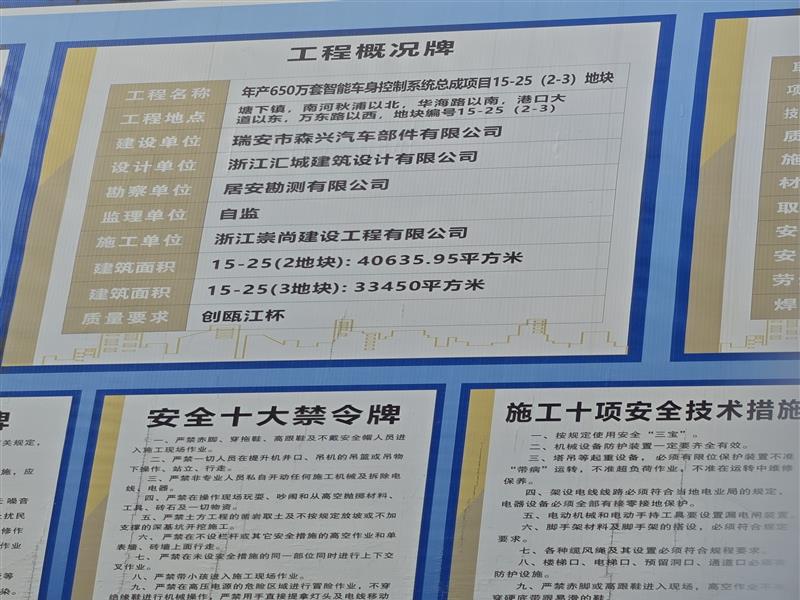 工程概况牌
工程名称 年产650万套智能车身控制系统总成项目15-25（2-3）地块
工程地点 塘下镇，南河秋浦以北，华海路以南，港口大
道以东，万东路以西，地块编号15-25（2-3）
建设单位 瑞安市森兴汽车部件有限公司
设计单位 浙江汇城建筑设计有限公司
勘察单位 居安勘测有限公司
监理单位 自监
施工单位 浙江崇尚建设工程有限公司
建筑面积 15-25(2地块)：40635.95平方米
建筑面积 15-25(3地块)：33450平方米
质量要求 创瓯江杯
安全十大禁令牌
一、严禁赤脚、穿拖鞋、高跟鞋及不戴安全帽人员进
入施工现场作业。
二、严禁一切人员在提升机井口、吊机的吊篮或吊物
下操作、站立、行走。
三、严禁非专业人员私自开动任何施工机械及拆除电
线、电器。
四、严禁在操作现场玩耍、吵闹和从高空抛掷材料、
工具、砖石及一切物资。
五、严禁土方工程的凿岩取土及不按规定放坡或不加
支撑的深基坑开挖施工。
六、严禁在不设栏杆或其它安全措施的高空作业和单
表墙、砖墙上面行走。
七、严禁在未设安全措施的同一部位同时进行上下交
叉作业。
八、严禁带小孩进入施工现场作业。
九、严禁在高压电源的危险区域进行冒险作业，不穿
绝缘鞋进行机械操作，严禁用手直接提拿灯头及电线移动
施工十项安全技术措施
一、按规定使用安全“三宝”。
二、机械设备防护装置一定要齐全有效。
三、塔吊等起重设备，必须有限位保护装置不准
“带病”运转，不准超负荷作业，不准在运转中维修
保养。
四、架设电线线路必须符合当地电业局的规定，
电器设备必须全部有接零接地保护。
五、电动机械和电动手持工具要设置漏电闸装置。
六、脚手架材料及脚手架的搭设，必须符合规定
要求。
七、各种缆风绳及其设置必须符合规程要求。
八、楼梯口、电梯口、预留洞口、通道口必须有
防护设施。
九、严禁赤脚或高跟鞋进入现场，高空作业不准
穿硬底带跟易滑的鞋